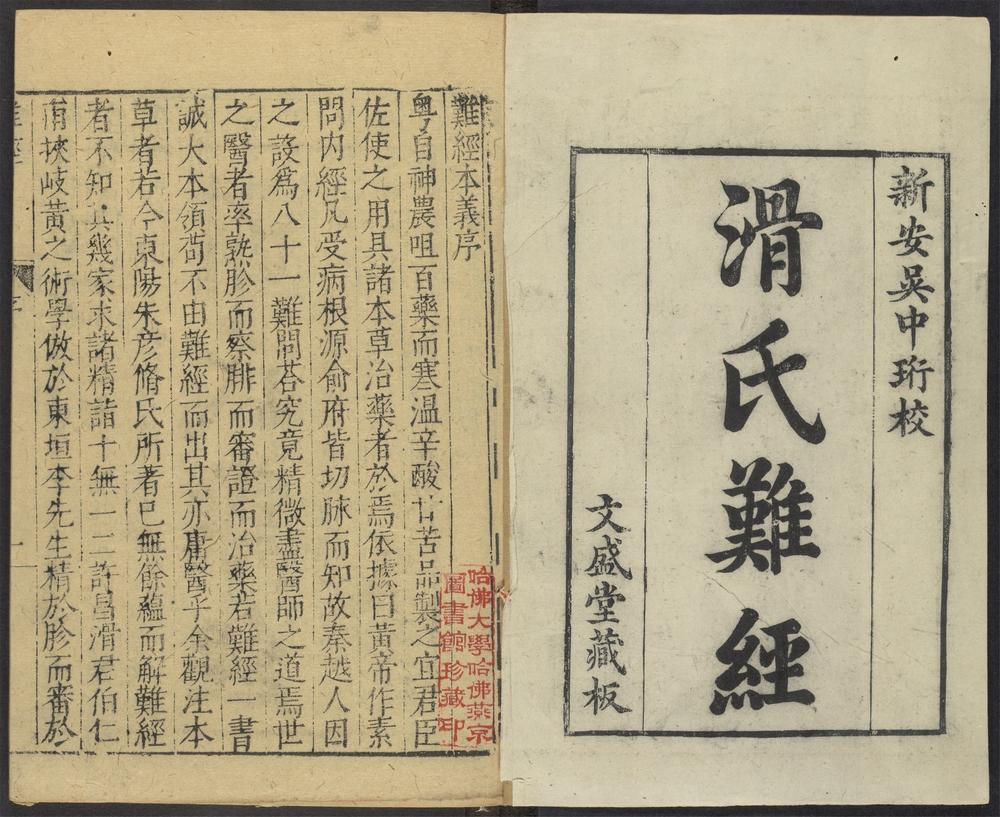 新安吳中珩校
滑氏難經
文盛堂藏板
難經本義序
粵自神農咀百藥而寒溫辛酸甘苦品製之宜君臣
佐使之用具諸本草治藥者於焉依據曰黃帝作素
問內經凡受病根源俞府皆切脉而知故秦越人因
之設爲八十一難問荅究竟精微盡醫師之道焉世
之醫者率熟胗而察腓而審證而治藥若難經一書
誠大本領苟不由難經而出其亦庸醫乎余觀注本
草者若今東陽朱彦脩氏所著已無餘蘊而解難經
者不知其幾家求諸精詣十無一二許昌滑君伯仁
甫挾岐黃之術學倣於東垣李先生精於胗而審於
哈佛大學哈佛燕京
圖書館珍藏印